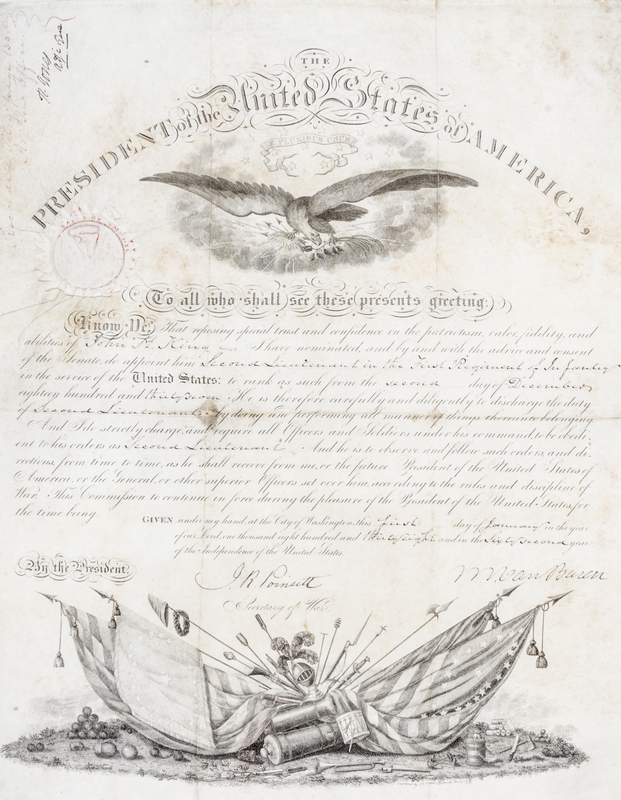 THE
PRESIDENT of the United States of AMERICA,
E PLURIBUS UNUM
To all who shall see these presents greeting:
Know Ye, That reposing special trust and confidence in the patriotism, valor, fidelity, and
abilities of John H. King I have nominated, and by and with the advice and consent
of the Senate, do appoint him Second Lieutenant in the First Regiment of Infantry
in the service of the United States: to rank as such from the second day of December
eighteen hundred and thirty seven. He is therefore carefully and diligently to discharge the duty
of Second Lieutenant by doing and performing all manner of things thereunto belonging.
And I do strictly charge, and require all Officers and Soldiers under his command, to be obedi-
ent to his orders as Second Lieutenant. And he is to observe and follow such orders, and di-
rections, from time to time, as he shall receive from me, or the future President of the United States of
America, or the General, or other superior Officers set over him, according to the rules and discipline of
War. This Commission to continue in force during the pleasure of the President of the United States, for
the time being.
GIVEN under my hand, at the City of Washington, this first day of January in the year
of our Lord, one thousand eight hundred and thirty eight and in the sixty second year
of the Independence of the United States.
By the President
M. Van Buren
J. R. Poinsett
Secretary of War.